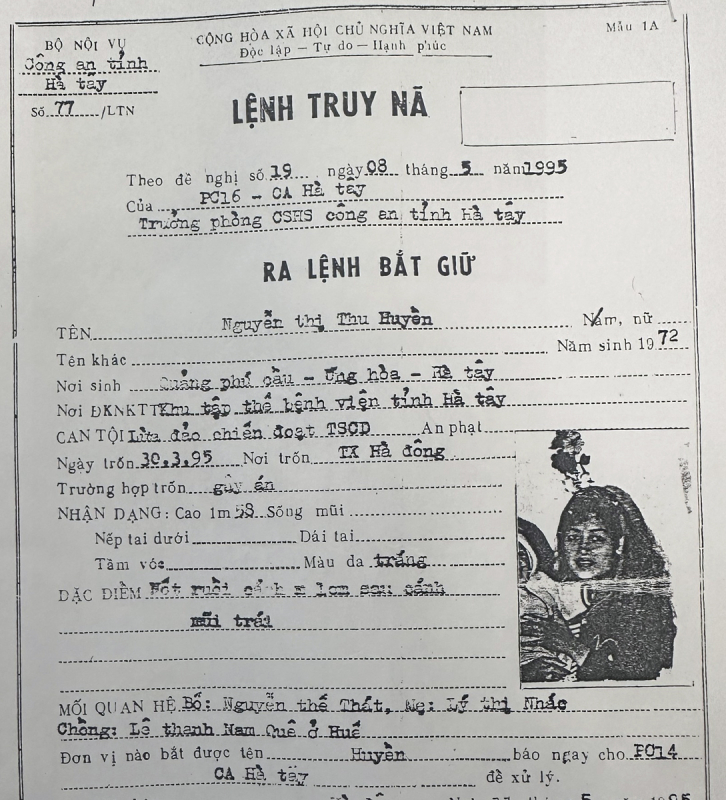 BỘ NỘI VỤ
Công an tỉnh
Hà tây
Số 77 /LTN
CỘNG HÒA XÃ HỘI CHỦ NGHĨA VIỆT NAM
Độc lập — Tự do — Hạnh phúc
Mẫu 1A
LỆNH TRUY NÃ
Theo đề nghị số 19 ngày 08 tháng 5 năm 1995
Của PC16 - CA Hà tây
Trưởng phòng CSHS công an tỉnh Hà tây
RA LỆNH BẮT GIỮ
TÊN Nguyễn thị Thu Huyền Nam, nữ
Tên khác Năm sinh 1972
Nơi sinh Quảng phú cầu - Ứng hòa - Hà tây
Nơi ĐKNKTT Khu tập thể bệnh viện tỉnh Hà tây
CAN TỘI Lừa đảo chiến đoạt TSCD An phạt
Ngày trốn 30.3.95 Nơi trốn TX Hà đông
Trường hợp trốn gây án
NHẬN DẠNG: Cao 1m58 Sống mũi
Nếp tai dưới Dái tai
Tầm vóc Màu da trắng
ĐẶC ĐIỂM Nốt ruồi cách 1cm sau cánh
mũi trái
MỐI QUAN HỆ Bố: Nguyễn thế Thát, Mẹ: Lý thị Nhác
Chồng: Lê thanh Nam Quê ở Huế
Đơn vị nào bắt được tên Huyền báo ngay cho PC14
CA Hà tây để xử lý.